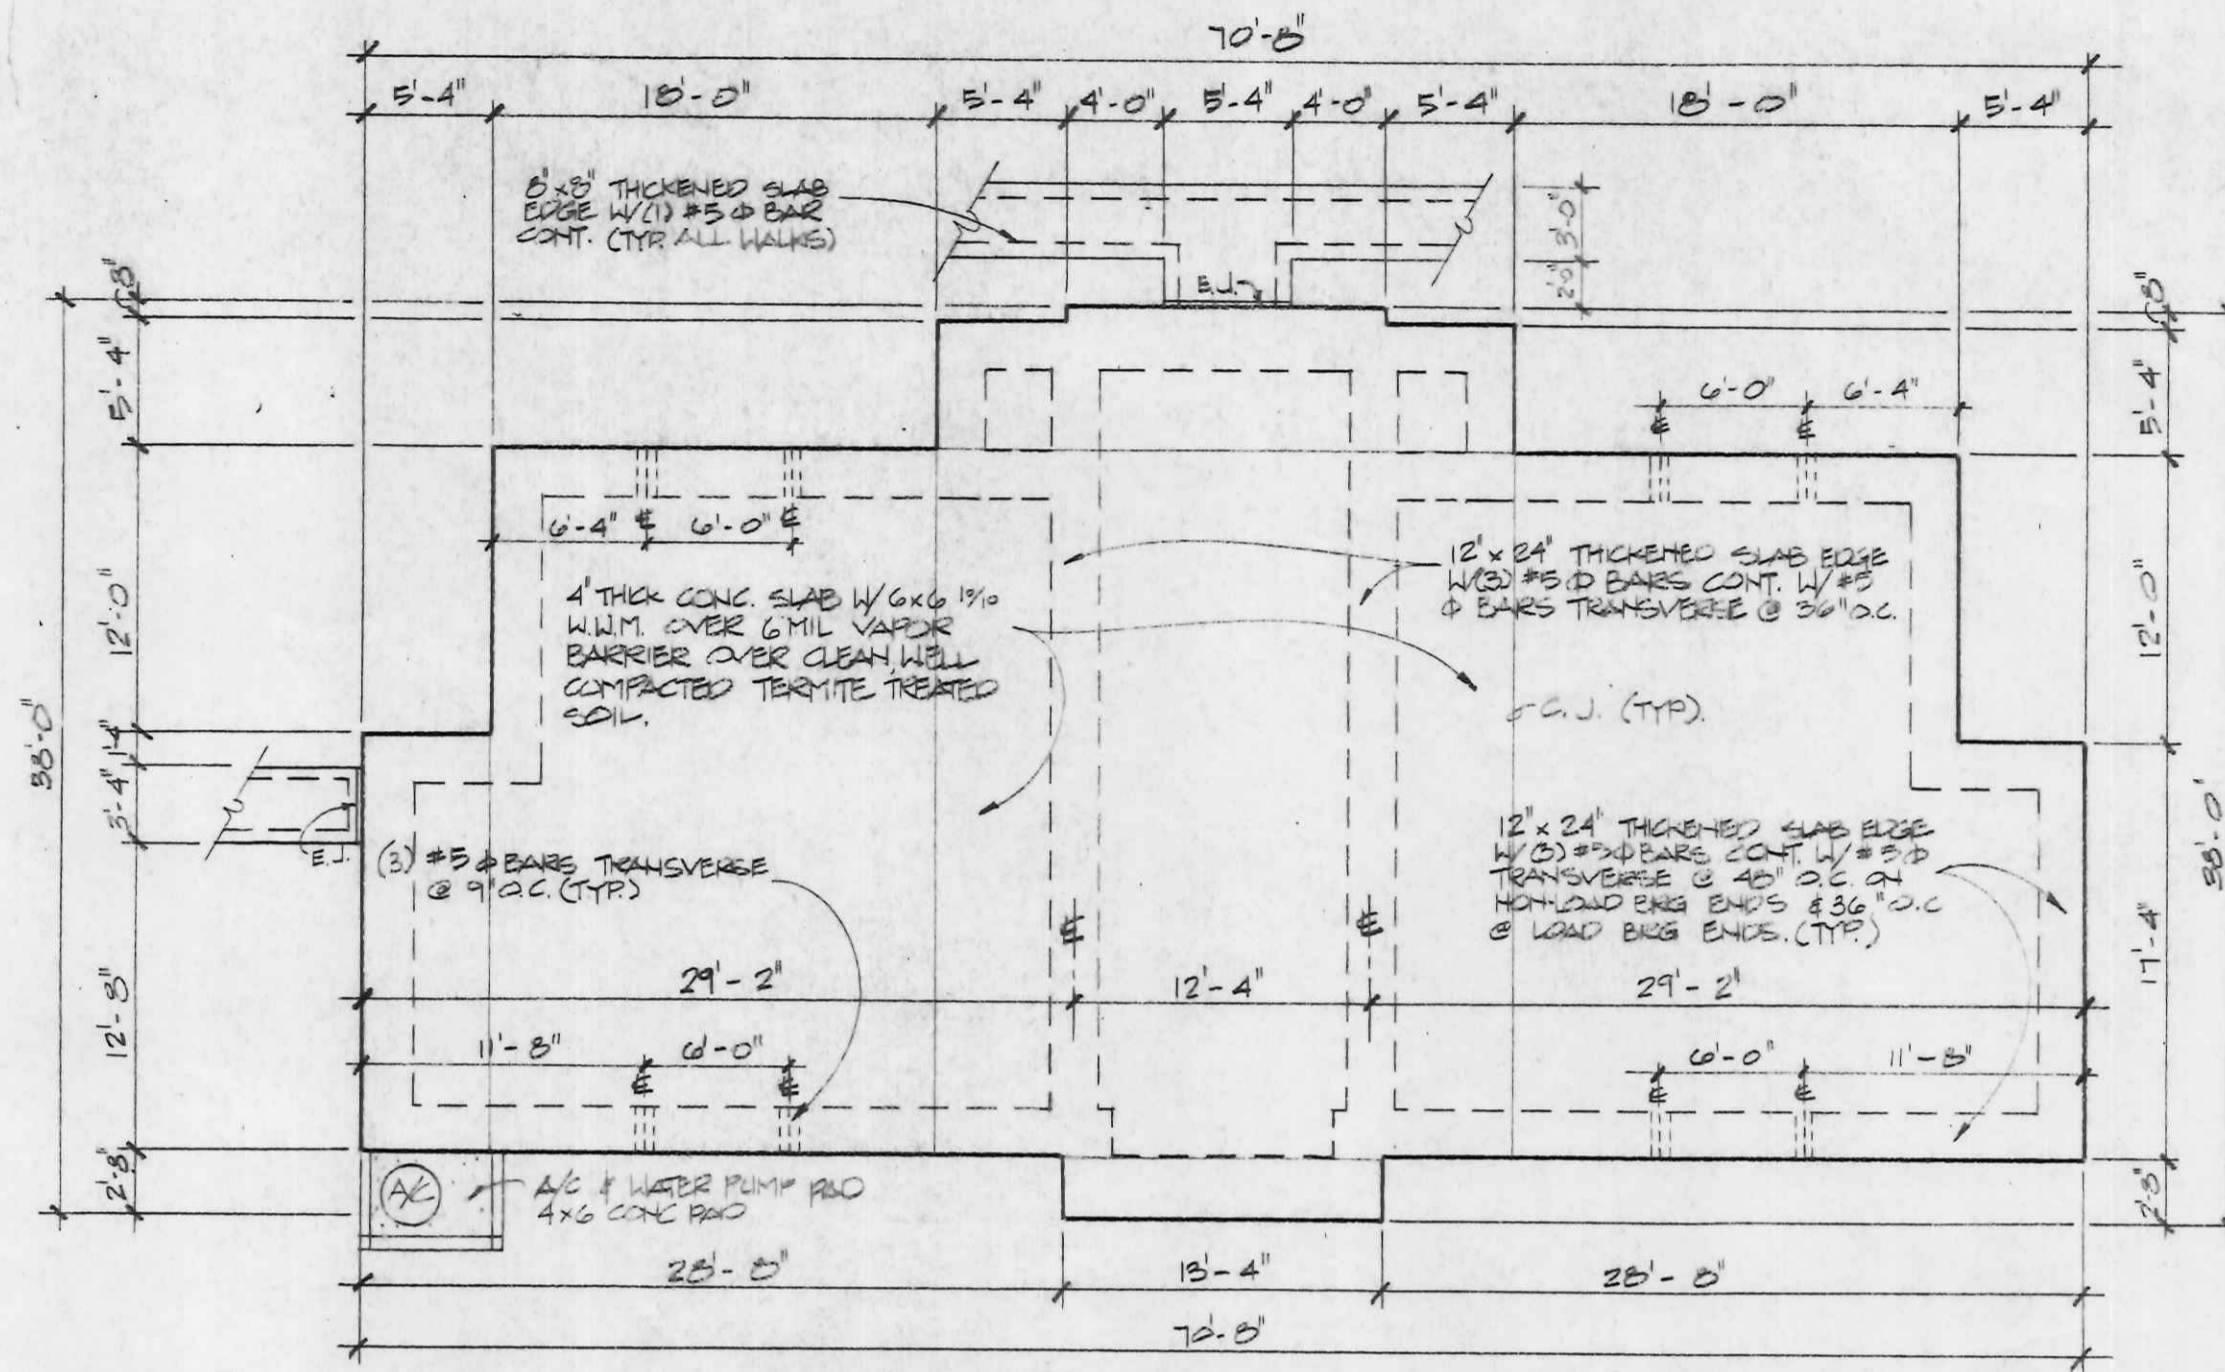 70'-8"
5'-4" 18'-0" 5'-4" 4'-0" 5'-4" 4'-0" 5'-4" 18'-0" 5'-4"
8"x8" THICKENED SLAB
EDGE W/(1) #5 Φ BAR
CONT. (TYP. ALL WALKS)
3'-0"
2'-0"
E.J.
8"
5'-4"
12'-0"
1'-4"
3'-4"
12'-8"
2'-8"
38'-0"
8"
5'-4"
12'-0"
17'-4"
2'-8"
38'-0"
6'-0" 6'-4"
℄ ℄
6'-4" ℄ 6'-0" ℄
12"x24" THICKENED SLAB EDGE
W/(3) #5 Φ BARS CONT. W/ #5
Φ BARS TRANSVERSE @ 36" O.C.
4" THICK CONC. SLAB W/ 6x6 10/10
W.W.M. OVER 6 MIL VAPOR
BARRIER OVER CLEAN, WELL
COMPACTED TERMITE TREATED
SOIL.
C.J. (TYP).
E.J.
(3) #5 Φ BARS TRANSVERSE
@ 9" O.C. (TYP.)
12"x24" THICKENED SLAB EDGE
W/(3) #5 Φ BARS CONT. W/ #5 Φ
TRANSVERSE @ 48" O.C. ON
NON-LOAD BRG ENDS & 36" O.C
@ LOAD BRG ENDS. (TYP.)
℄ ℄
29'-2" 12'-4" 29'-2"
11'-8" 6'-0" 6'-0" 11'-8"
℄ ℄ ℄ ℄
A/C
A/C & WATER PUMP PAD
4x6 CONC PAD
28'-8" 13'-4" 28'-8"
70'-8"